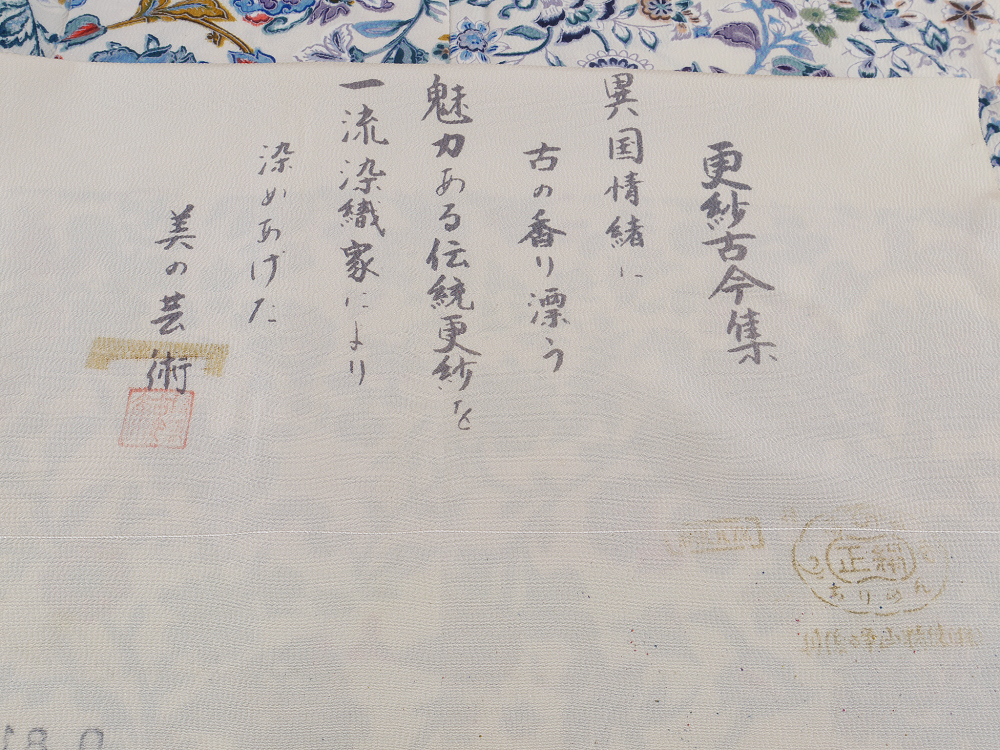 更紗古今集
異国情緒に
古の香り漂う
魅力ある伝統更紗を
一流染織家により
染めあげた
美の芸術
正絹
ちりめん